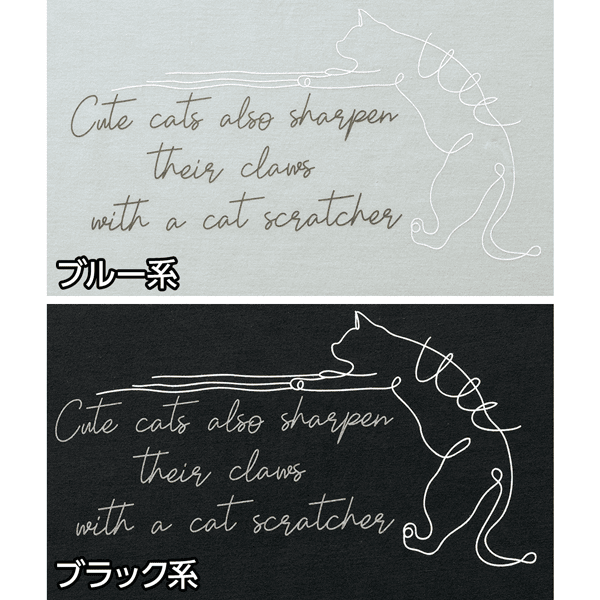 Cute cats also sharpen
their claws
with a cat scratcher
ブルー系
Cute cats also sharpen
their claws
with a cat scratcher
ブラック系